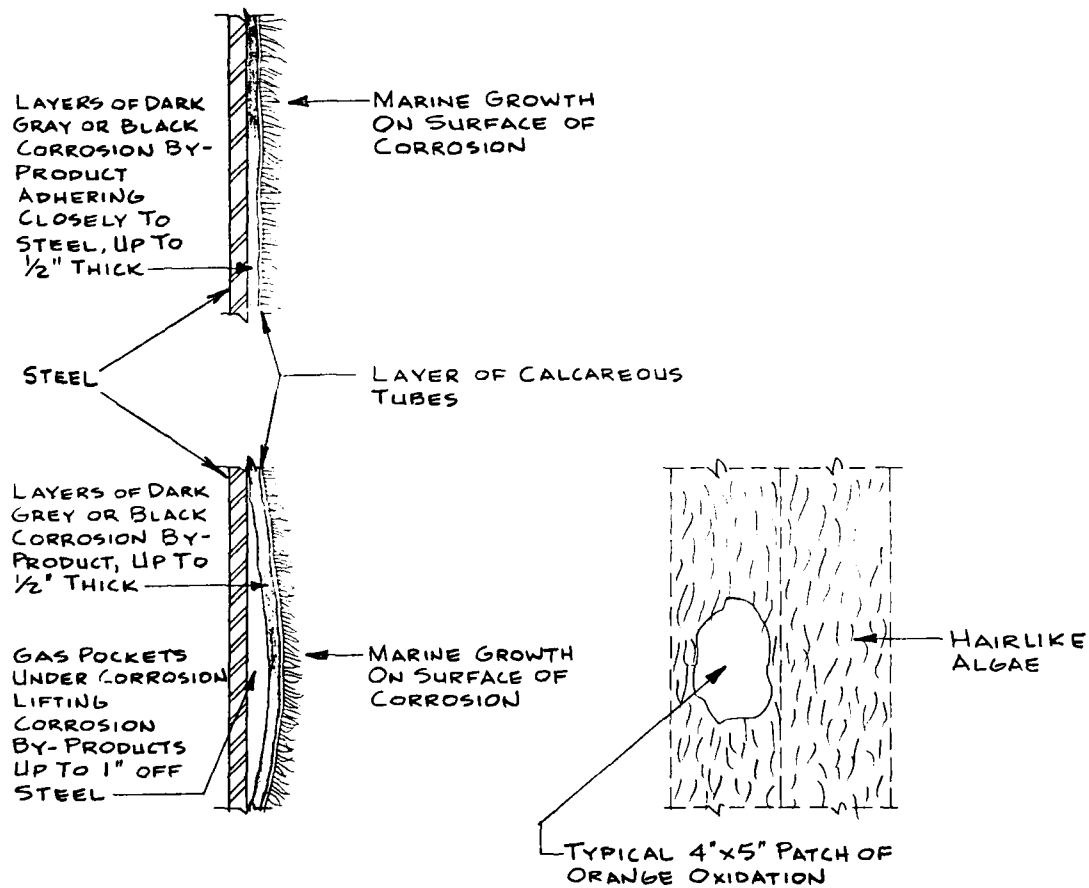 LAYERS OF DARK
GRAY OR BLACK
CORROSION BY-
PRODUCT
ADHERING
CLOSELY TO
STEEL, UP TO
1/2" THICK
MARINE GROWTH
ON SURFACE OF
CORROSION
STEEL
LAYER OF CALCAREOUS
TUBES
LAYERS OF DARK
GREY OR BLACK
CORROSION BY-
PRODUCT, UP TO
1/2" THICK
GAS POCKETS
UNDER CORROSION
LIFTING
CORROSION
BY-PRODUCTS
UP TO 1" OFF
STEEL
MARINE GROWTH
ON SURFACE OF
CORROSION
HAIRLIKE
ALGAE
TYPICAL 4"x5" PATCH OF
ORANGE OXIDATION